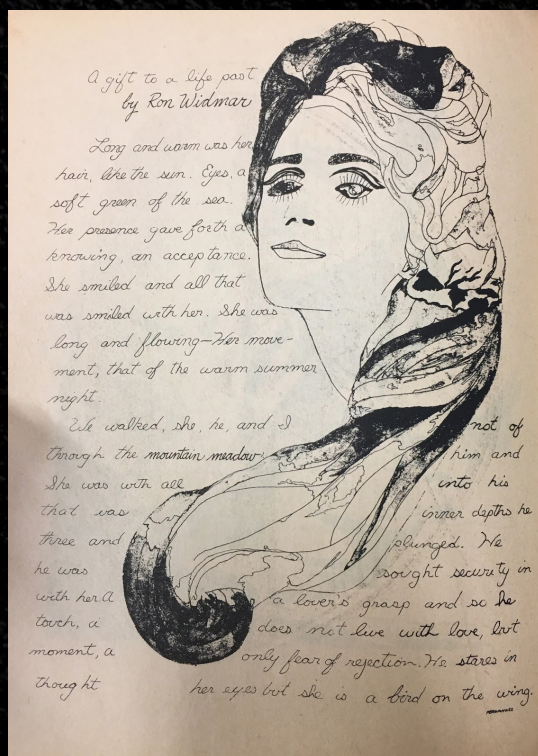 A gift to a life past
by Ron Widmar
Long and warm was her
hair, like the sun. Eyes, a
soft green of the sea.
Her presence gave forth a
knowing, an acceptance.
She smiled and all that
was smiled with her. She was
long and flowing—Her move-
ment, that of the warm summer
night.
We walked, she, he, and I
through the mountain meadow
She was with all
that was
three and
he was
with her. A
touch, a
moment, a
thought
not of
him and
into his
inner depths he
plunged. He
sought security in
a lover's grasp and so he
does not live with love, but
only fear of rejection. He stares in
her eyes but she is a bird on the wing.